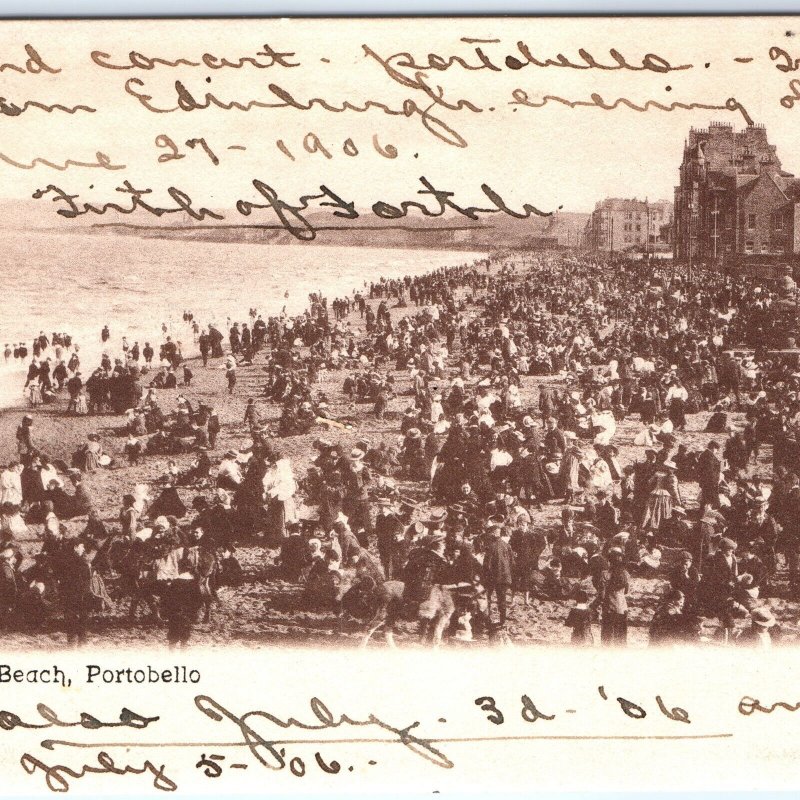 nd concert. portobello. - 2
om Edinburgh. evening of
ne 27 - 1906.
Firth of Forth
Beach, Portobello
also July. 3d - '06 an
July 5 - '06..